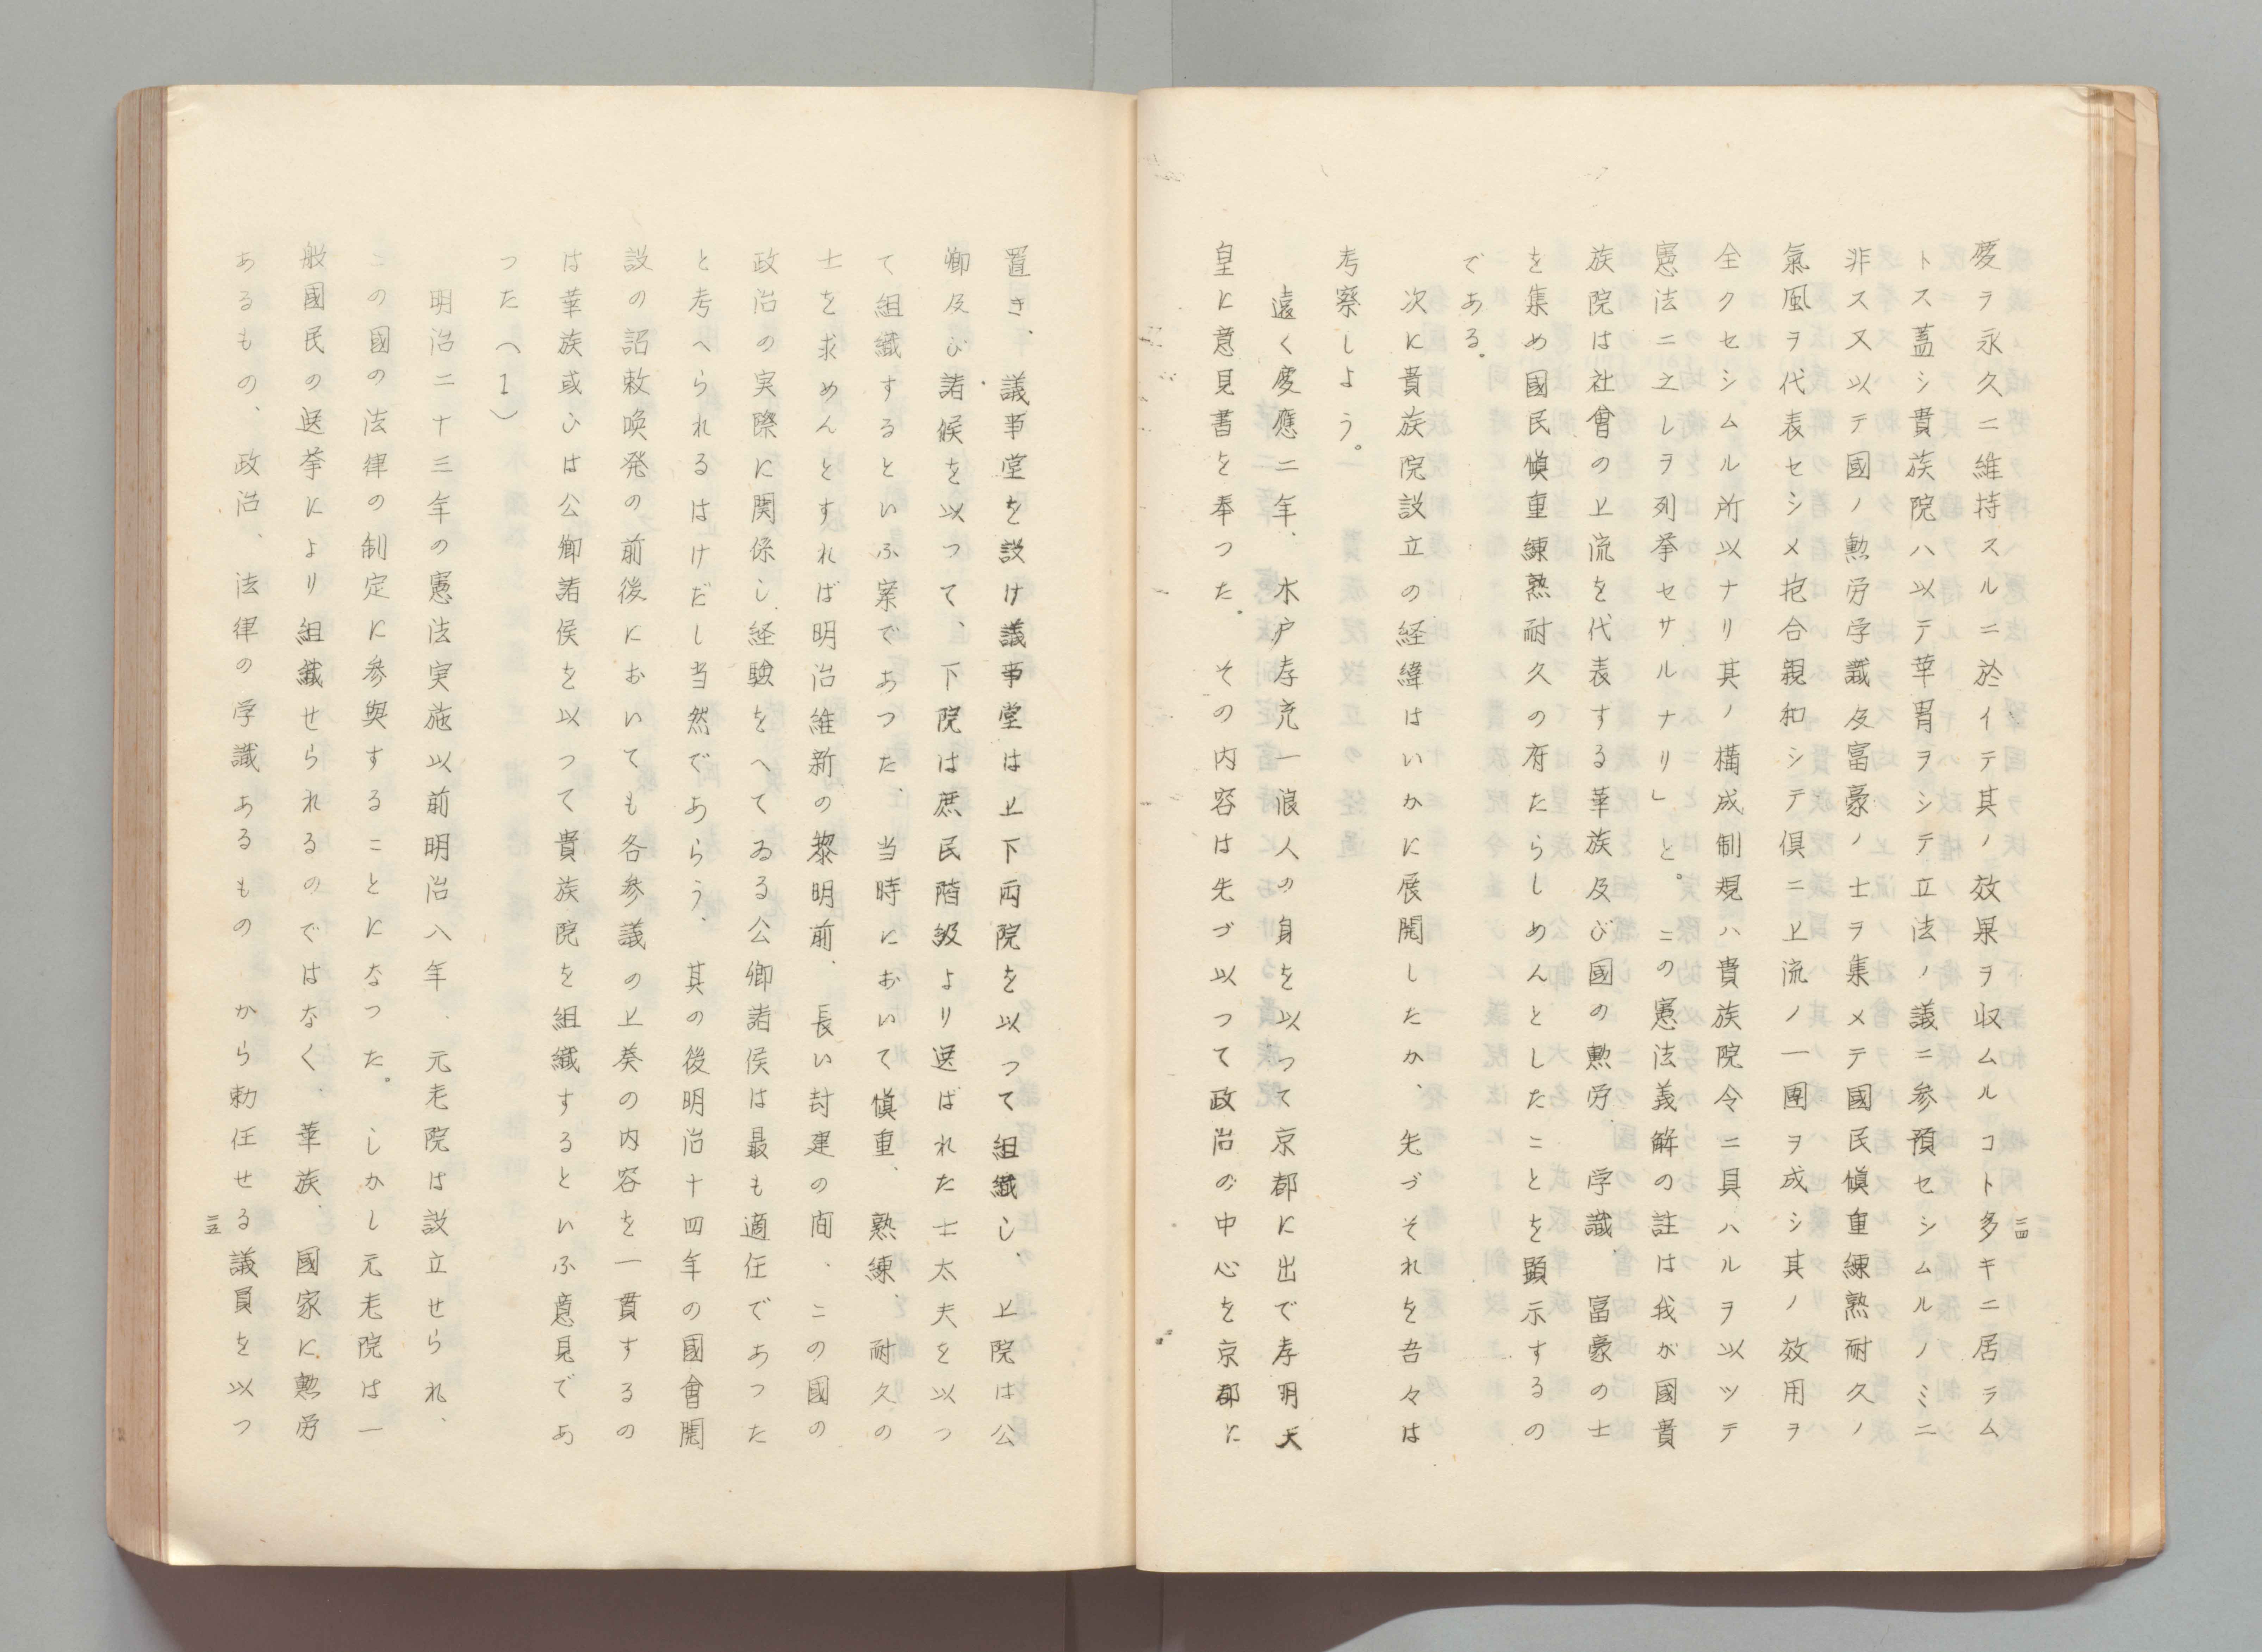 慶ヲ永久ニ維持スルニ於イテ其ノ效果ヲ収ムルコト多キニ居ラム
トス蓋シ貴族院ハ以テ華冑ヲシテ立法ノ議ニ参預セシムルノミニ
非ス又以テ國ノ勲労学識及富豪ノ士ヲ集メテ國民慎重練熟耐久ノ
氣風ヲ代表セシメ抱合親和シテ倶ニ上流ノ一團ヲ成シ其ノ效用ヲ
全クセシムル所以ナリ其ノ構成制規ハ貴族院令ニ具ハルヲ以ツテ
憲法ニ之レヲ列挙セサルナリ」と。この憲法義解の註は我が國貴
族院は社會の上流を代表する華族及び國の勲労、学識、富豪の士
を集め國民慎重練熟耐久の府たらしめんとしたことを顕示するの
である。
次に貴族院設立の経緯はいかに展開したか、先づそれを吾々は
考察しよう。
遠く慶應二年、木戸孝允一浪人の身を以つて京都に出で孝明天
皇に意見書を奉つた。その内容は先づ以つて政治の中心を京都に
二四
置き、議事堂を設け議事堂は上下両院を以つて組織し、上院は公
卿及び諸候を以つて、下院は庶民階級より選ばれた士太夫を以つ
て組織するといふ案であつた、当時において慎重、熟練、耐久の
士を求めんとすれば明治維新の黎明前、長い封建の間、この國の
政治の実際に関係し、経験をへてゐる公卿諸侯は最も適任であつた
と考へられるはけだし当然であらう、其の後明治十四年の國會開
設の詔敕喚発の前後においても各参議の上奏の内容を一貫するの
は華族或ひは公卿諸侯を以つて貴族院を組織するといふ意見であ
つた(1)
明治二十三年の憲法実施以前明治八年、元老院は設立せられ、
この國の法律の制定に参與することになつた。しかし元老院は一
般國民の選挙により組織せられるのではなく、華族、國家に勲労
あるもの、政治、法律の学識あるものから勅任せる議員を以つ
二五